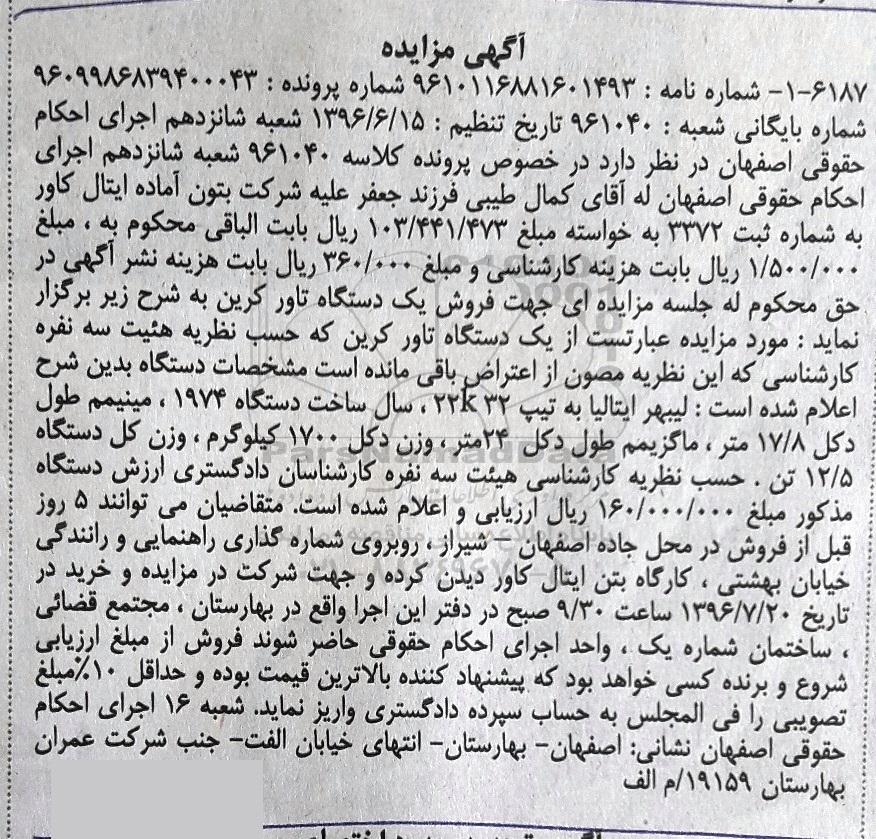 آگهی مزایده
۱-۶۱۸۷- شماره نامه : ۹۶۱۰۱۱۶۸۸۱۶۰۱۴۹۳ شماره پرونده : ۹۶۰۹۹۸۶۸۳۹۴۰۰۰۴۳
شماره بایگانی شعبه : ۹۶۱۰۴۰ تاریخ تنظیم : ۱۳۹۶/۶/۱۵ شعبه شانزدهم اجرای احکام
حقوقی اصفهان در نظر دارد در خصوص پرونده کلاسه ۹۶۱۰۴۰ شعبه شانزدهم اجرای
احکام حقوقی اصفهان له آقای کمال طیبی فرزند جعفر علیه شرکت بتون آماده ایتال کاور
به شماره ثبت ۳۳۷۲ به خواسته مبلغ ۱۰۳/۴۴۱/۴۷۳ ریال بابت الباقی محکوم به ، مبلغ
۱/۵۰۰/۰۰۰ ریال بابت هزینه کارشناسی و مبلغ ۳۶۰/۰۰۰ ریال بابت هزینه نشر آگهی در
حق محکوم له جلسه مزایده ای جهت فروش یک دستگاه تاور کرین به شرح زیر برگزار
نماید : مورد مزایده عبارتست از یک دستگاه تاور کرین که حسب نظریه هئیت سه نفره
کارشناسی که این نظریه مصون از اعتراض باقی مانده است مشخصات دستگاه بدین شرح
اعلام شده است : لیبهر ایتالیا به تیپ ۳۲ ۲۲k ، سال ساخت دستگاه ۱۹۷۴ ، مینیمم طول
دکل ۱۷/۸ متر ، ماگزیمم طول دکل ۲۴متر ، وزن دکل ۱۷۰۰ کیلوگرم ، وزن کل دستگاه
۱۲/۵ تن . حسب نظریه کارشناسی هیئت سه نفره کارشناسان دادگستری ارزش دستگاه
مذکور مبلغ ۱۶۰/۰۰۰/۰۰۰ ریال ارزیابی و اعلام شده است. متقاضیان می توانند ۵ روز
قبل از فروش در محل جاده اصفهان – شیراز ، روبروی شماره گذاری راهنمایی و رانندگی
خیابان بهشتی ، کارگاه بتن ایتال کاور دیدن کرده و جهت شرکت در مزایده و خرید در
تاریخ ۱۳۹۶/۷/۲۰ ساعت ۹/۳۰ صبح در دفتر این اجرا واقع در بهارستان ، مجتمع قضائی
، ساختمان شماره یک ، واحد اجرای احکام حقوقی حاضر شوند فروش از مبلغ ارزیابی
شروع و برنده کسی خواهد بود که پیشنهاد کننده بالاترین قیمت بوده و حداقل ۱۰٪مبلغ
تصویبی را فی المجلس به حساب سپرده دادگستری واریز نماید. شعبه ۱۶ اجرای احکام
حقوقی اصفهان نشانی: اصفهان- بهارستان- انتهای خیابان الفت- جنب شرکت عمران
بهارستان ۱۹۱۵۹/م الف